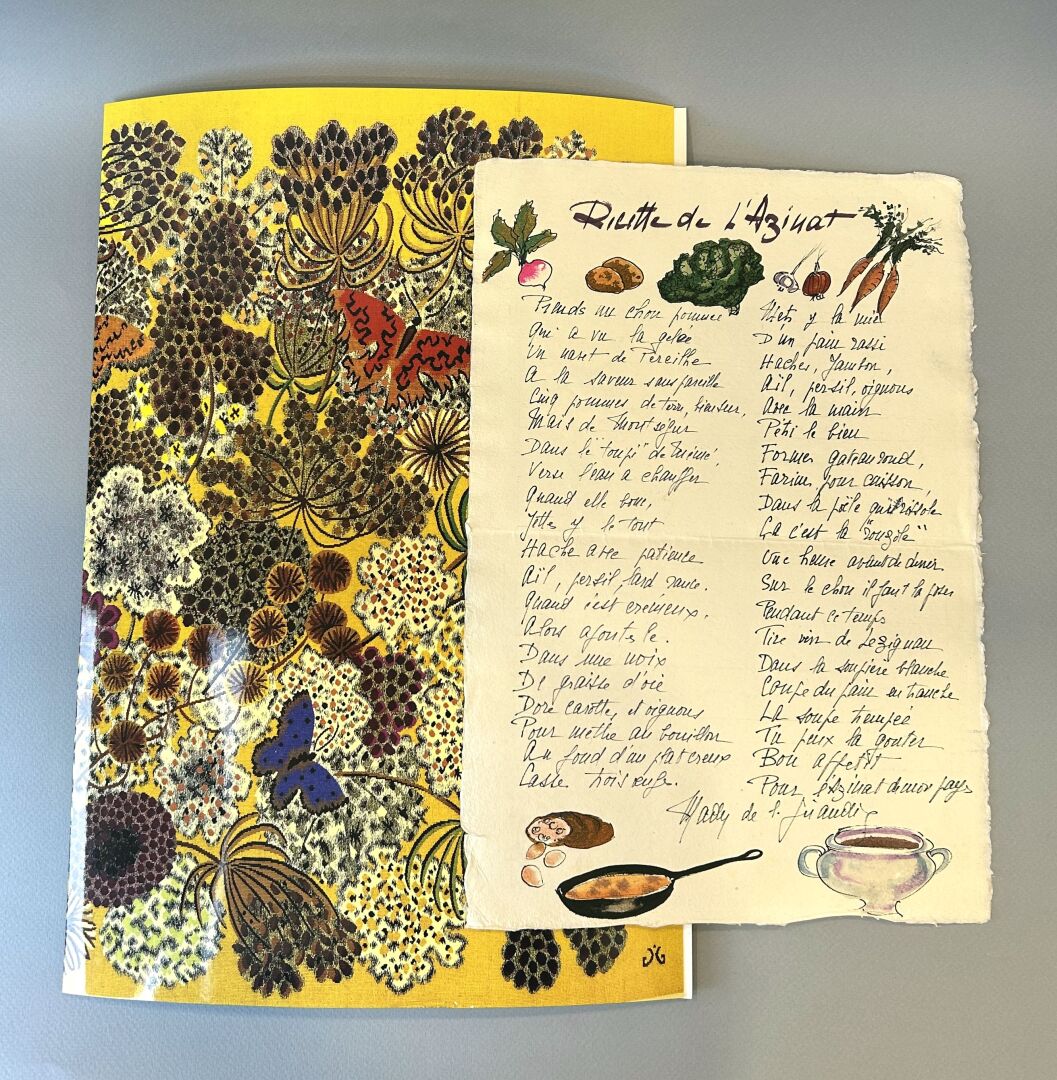 Recette de l'Azinat
Prends un chou pommé
Qui a vu la gelée
Un navet de Pereilhe
A la saveur sans pareille
Cinq pommes de terre, bien sûr,
Mais de Montségur
Dans le "toupi" de mémé,
Verse l'eau a chauffer
Quand elle bout,
Jette y le tout
Hache avec patience
Aïl, persil lard rance.
Quand c'est crémeux,
Alors ajoute le.
Dans une noix
De graisse d'oie
Dore carotte, et oignons
Pour mettre au bouillon
Au fond d'un plat creux
Casse trois œufs.
Mets y la mie
D'un pain rassi
Haches, Jambon,
Aïl, persil, oignons
Avec la main
Pétri le bien
Former gateau rond,
Farine, pour cuisson,
Dans la poële qui rissole
Ça c'est la "rouzole"
Une heure avant de diner
Sur le chou il faut la poser
Pendant ce temps
Tire vin de Lezignan
Dans la soupière blanche
Coupe du pain en tranche
La soupe trempée
Tu peux la gouter
Bon appétit
Pour l'Azinat de mon pays
de
JG